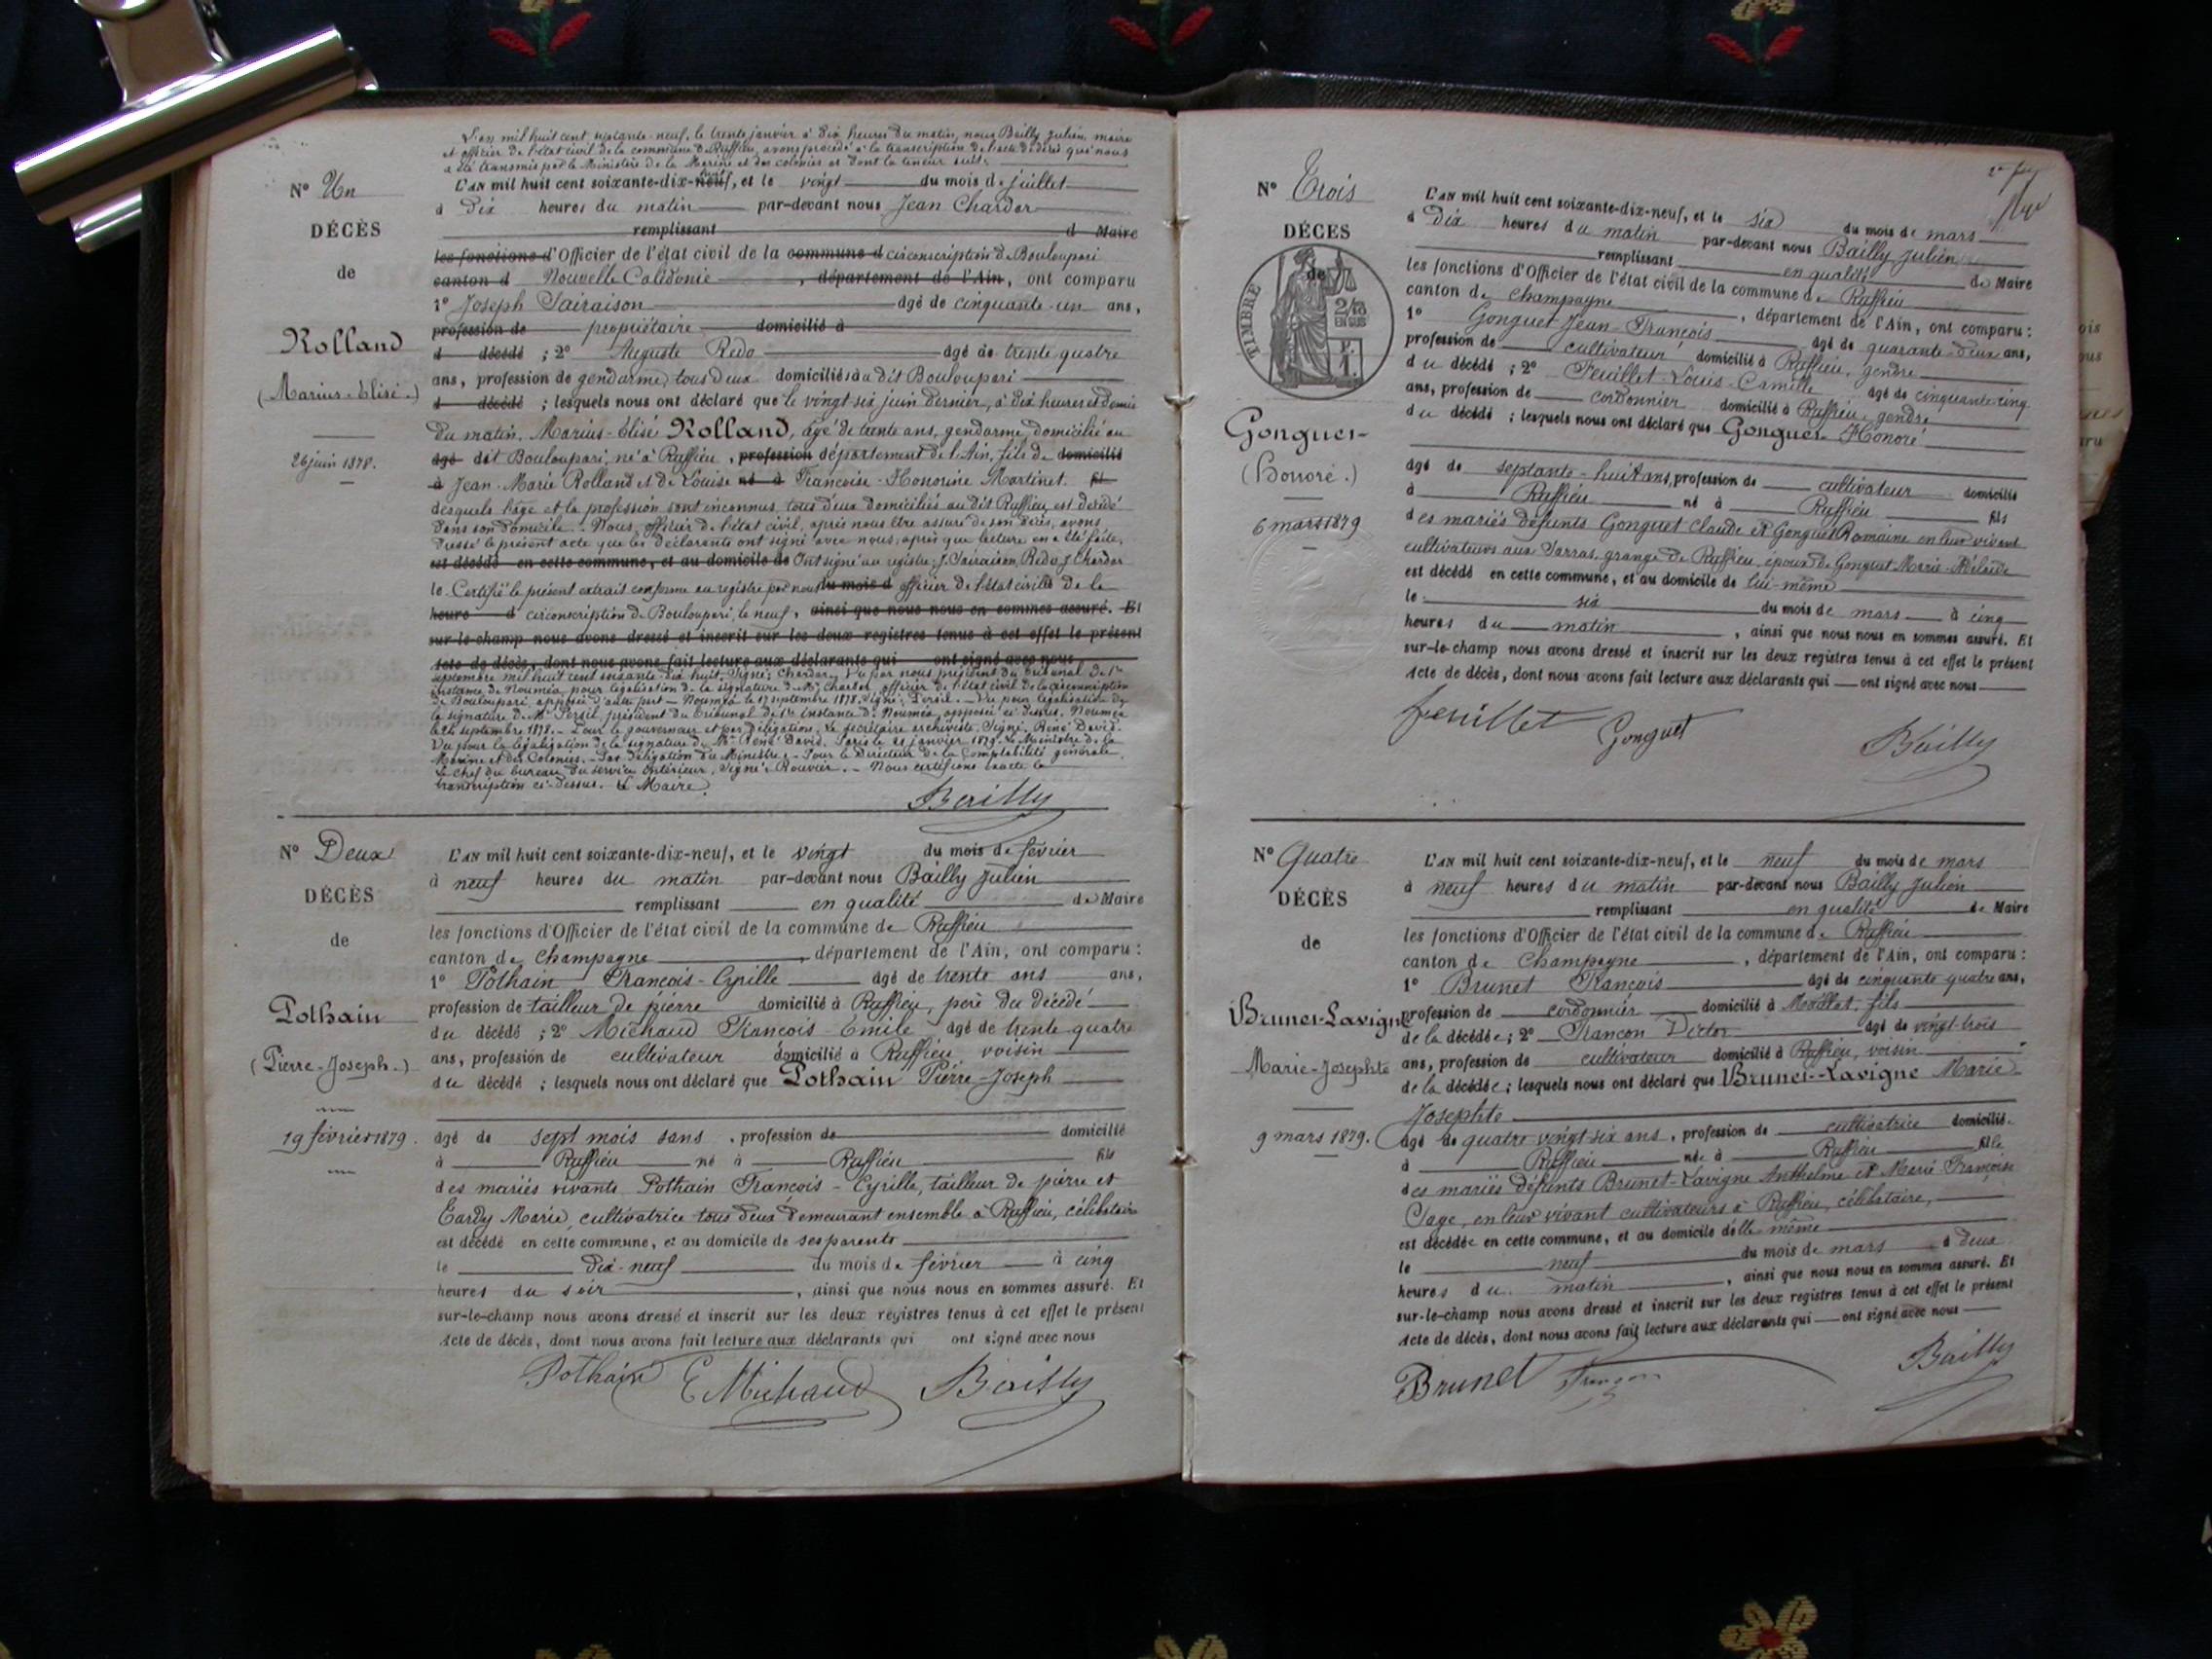 L'an mil huit cent septante-neuf, le trente janvier à dix heures du matin, nous Bailly Julien, maire
et officier de l'état civil de la commune de Ruffieu, avons procédé à la transcription de l'acte de décès qui nous
a été transmis par le Ministère de la Marine et des colonies et dont la teneur suit:
N° Un
L'AN mil huit cent soixante-dix-neuf, et le vingt du mois de juillet
à Dix heures du matin par-devant nous Jean Chardar
DÉCÈS
remplissant d Maire
les fonctions d'Officier de l'état civil de la commune d circonscription de Bouloupari
de
canton d Nouvelle Calédonie, département de l'Ain, ont comparu
1° Joseph Sairaison âgé de cinquante-un ans,
Rolland
profession de propriétaire domicilié à
d décédé ; 2° Auguste Redo âgé de trente quatre
(Marius-Elisé.)
ans, profession de gendarme, tous deux domiciliés au dit Bouloupari
d décédé ; lesquels nous ont déclaré que le vingt-six juin dernier, à dix heures et demie
du matin, Marius-Elisé Rolland, âgé de trente ans, gendarme, domicilié au
26 juin 1878.
âgé dit Bouloupari, né à Ruffieu, profession département de l'Ain, fils de domicilié
à Jean-Marie Rolland et de Louise né à Françoise-Honorine Martinet. fil
desquels l'âge et la profession sont inconnus, tous deux domiciliés au dit Ruffieu, est décédé
dans son domicile. Nous, officier de l'état civil, après nous être assuré de son décès, avons
dressé le présent acte que les déclarants ont signé avec nous, après que lecture en a été faite.
est décédé en cette commune, et au domicile de Ont signé au registre: J. Sairaison, Redo, J. Chardar
le Certifié le présent extrait conforme au registre par nous du mois d officier de l'état civil de la
heure d circonscription de Bouloupari, le neuf, ainsi que nous nous en sommes assuré. Et
sur-le-champ nous avons dressé et inscrit sur les deux registres tenus à cet effet le présent
acte de décès, dont nous avons fait lecture aux déclarants qui ont signé avec nous
septembre mil huit cent soixante-dix huit. Signé: Chardar. Vu par nous président du tribunal de 1re
instance de Nouméa, pour légalisation de la signature de Mr Chardar, officier de l'état civil de la circonscription
de Bouloupari, apposée d'autre part — Nouméa le 17 septembre 1878. Signé: Persil. — Vu pour légalisation de
la signature de Mr Persil, président du Tribunal de 1re instance de Nouméa, apposée ci-dessus. Nouméa
le 24 septembre 1878. — Pour le gouverneur et par délégation, Le secrétaire archiviste. Signé: René David.
Vu pour la légalisation de la signature de Mr René David. Paris le 21 janvier 1879. Le Ministre de la
Marine et des Colonies. — Par délégation du Ministre. — Pour le Directeur de la Comptabilité générale
Le chef du bureau du service intérieur, Signé: Rouvier. — Nous certifions exacte la
transcription ci-dessus. Le Maire.
Bailly
N° Deux
L'AN mil huit cent soixante-dix-neuf, et le vingt du mois de février
à neuf heures du matin par-devant nous Bailly Julien
DÉCÈS
remplissant en qualité de Maire
les fonctions d'Officier de l'état civil de la commune de Ruffieu
de
canton de Champagne, département de l'Ain, ont comparu :
1° Pothain François-Cyrille âgé de trente ans ans,
Pothain
profession de tailleur de pierre domicilié à Ruffieu, père du décédé
du décédé ; 2° Michaud François-Emile âgé de trente-quatre
(Pierre-Joseph.)
ans, profession de cultivateur domicilié à Ruffieu, voisin
du décédé ; lesquels nous ont déclaré que Pothain Pierre-Joseph
19 février 1879.
âgé de sept mois sans, profession de domicilié
à Ruffieu né à Ruffieu fils
des mariés vivants Pothain François-Cyrille, tailleur de pierre et
Tardy Marie, cultivatrice tous deux demeurant ensemble à Ruffieu, célibataire
est décédé en cette commune, et au domicile de ses parents
le dix-neuf du mois de février à cinq
heures du soir, ainsi que nous nous en sommes assuré. Et
sur-le-champ nous avons dressé et inscrit sur les deux registres tenus à cet effet le présent
acte de décès, dont nous avons fait lecture aux déclarants qui ont signé avec nous
Pothain E Michaud Bailly
N° Trois
L'AN mil huit cent soixante-dix-neuf, et le six du mois de mars
à Dix heures du matin par-devant nous Bailly Julien
DÉCÈS
remplissant en qualité de Maire
de
TIMBRE
2/10
EN SUS
les fonctions d'Officier de l'état civil de la commune de Ruffieu
canton de Champagne, département de l'Ain, ont comparu :
1° Gonguet Jean-François âgé de quarante-deux ans,
profession de cultivateur domicilié à Ruffieu, gendre
du décédé ; 2° Feuillet Louis-Camille âgé de cinquante-cinq
ans, profession de cordonnier domicilié à Ruffieu, gendre
Gonguet
du décédé ; lesquels nous ont déclaré que Gonguet Honoré
(Honoré.)
âgé de septante-huit ans, profession de cultivateur domicilié
à Ruffieu né à Ruffieu fils
6 mars 1879
des mariés défunts Gonguet Claude et Gonguet Romaine en leur vivant
cultivateurs aux Sarras, grange de Ruffieu, époux de Gonguet Marie-Mélanie
est décédé en cette commune, et au domicile de lui-même
le six du mois de mars à cinq
heures du matin, ainsi que nous nous en sommes assuré. Et
sur-le-champ nous avons dressé et inscrit sur les deux registres tenus à cet effet le présent
acte de décès, dont nous avons fait lecture aux déclarants qui ont signé avec nous
feuillet Gonguet Bailly
N° Quatre
L'AN mil huit cent soixante-dix-neuf, et le neuf du mois de mars
à neuf heures du matin par-devant nous Bailly Julien
DÉCÈS
remplissant en qualité de Maire
les fonctions d'Officier de l'état civil de la commune de Ruffieu
de
canton de Champagne, département de l'Ain, ont comparu :
1° Brunet François âgé de cinquante quatre ans,
Brunet-Lavigne
profession de cordonnier domicilié à fils
de la décédée ; 2° Françon Victor âgé de vingt-trois
Marie-Josephte
ans, profession de cultivateur domicilié à Ruffieu, voisin
de la décédée ; lesquels nous ont déclaré que Brunet-Lavigne Marie
Josephte
9 mars 1879.
âgé de quatre vingt-six ans, profession de cultivatrice domicilié
à Ruffieu née à Ruffieu fille
des mariés défunts Brunet-Lavigne Anthelme et Marie Françoise
Clage, en leur vivant cultivateurs à Ruffieu, célibataire,
est décédée en cette commune, et au domicile d'elle même
le neuf du mois de mars à deux
heures du matin, ainsi que nous nous en sommes assuré. Et
sur-le-champ nous avons dressé et inscrit sur les deux registres tenus à cet effet le présent
acte de décès, dont nous avons fait lecture aux déclarants qui ont signé avec nous
Brunet Françon Bailly